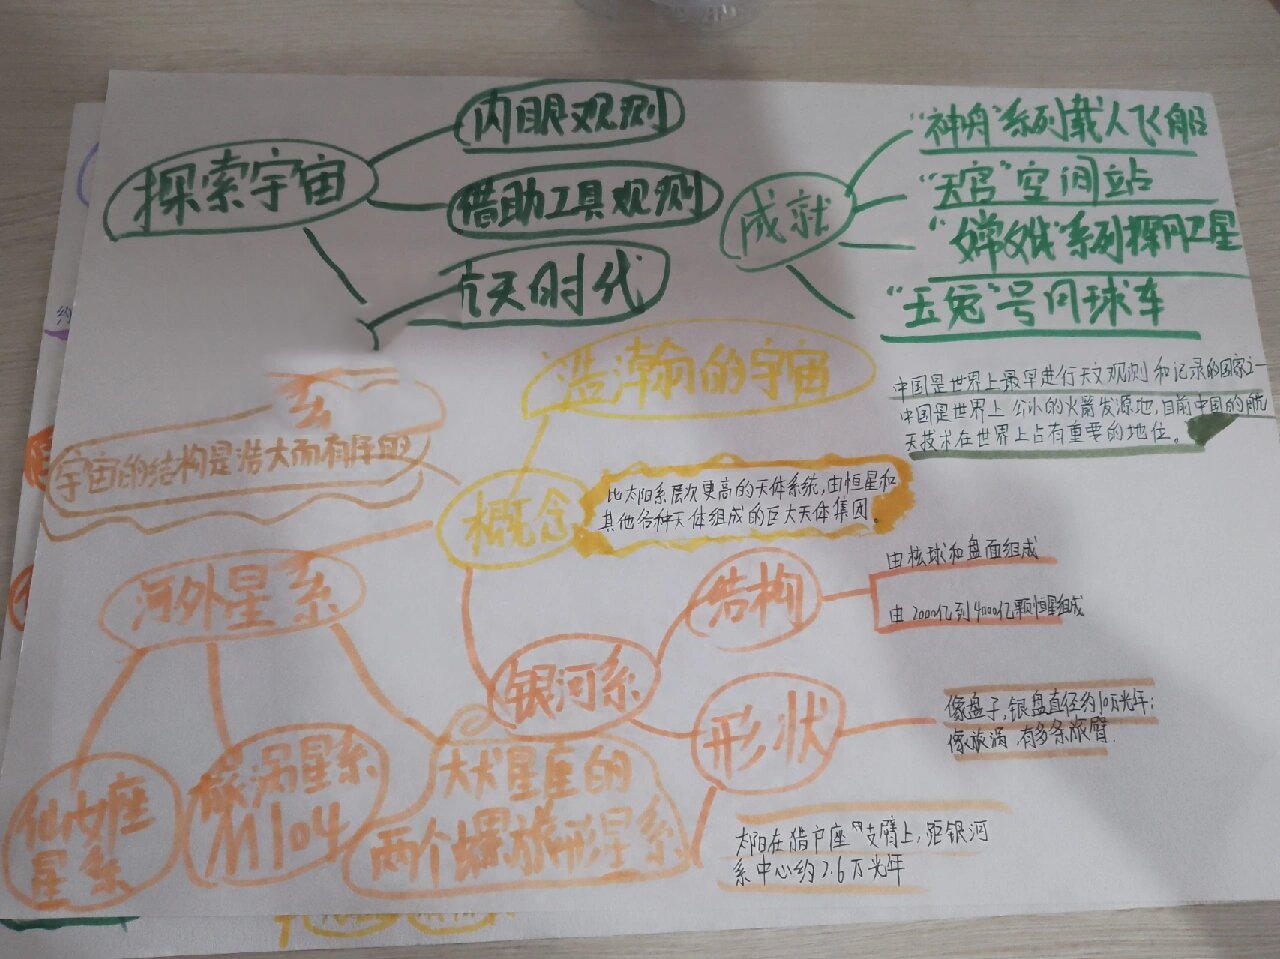 探索宇宙
肉眼观测
借助工具观测
天时代
成就
“神舟”系列载人飞船
“天宫”空间站
“嫦娥”系列探月卫星
“玉兔”号月球车
中国是世界上最早进行天文观测和记录的国家之一
中国是世界上公认的火箭发源地,目前中国的航
天技术在世界上占有重要的地位。
浩瀚的宇宙
宇宙的结构是浩大而有序的
概念
比太阳系层次更高的天体系统,由恒星和
其他各种天体组成的巨大天体集团。
河外星系
仙女座
星系
涡星系
M104
大犬星座的
两个螺旋形星系
银河系
结构
由核球和盘面组成
由2000亿到4000亿颗恒星组成
形状
像盘子,银盘直径约10万光年;
像旋涡 有多条旋臂
太阳在猎户座“支臂上,距银河
系中心约2.6万光年
约